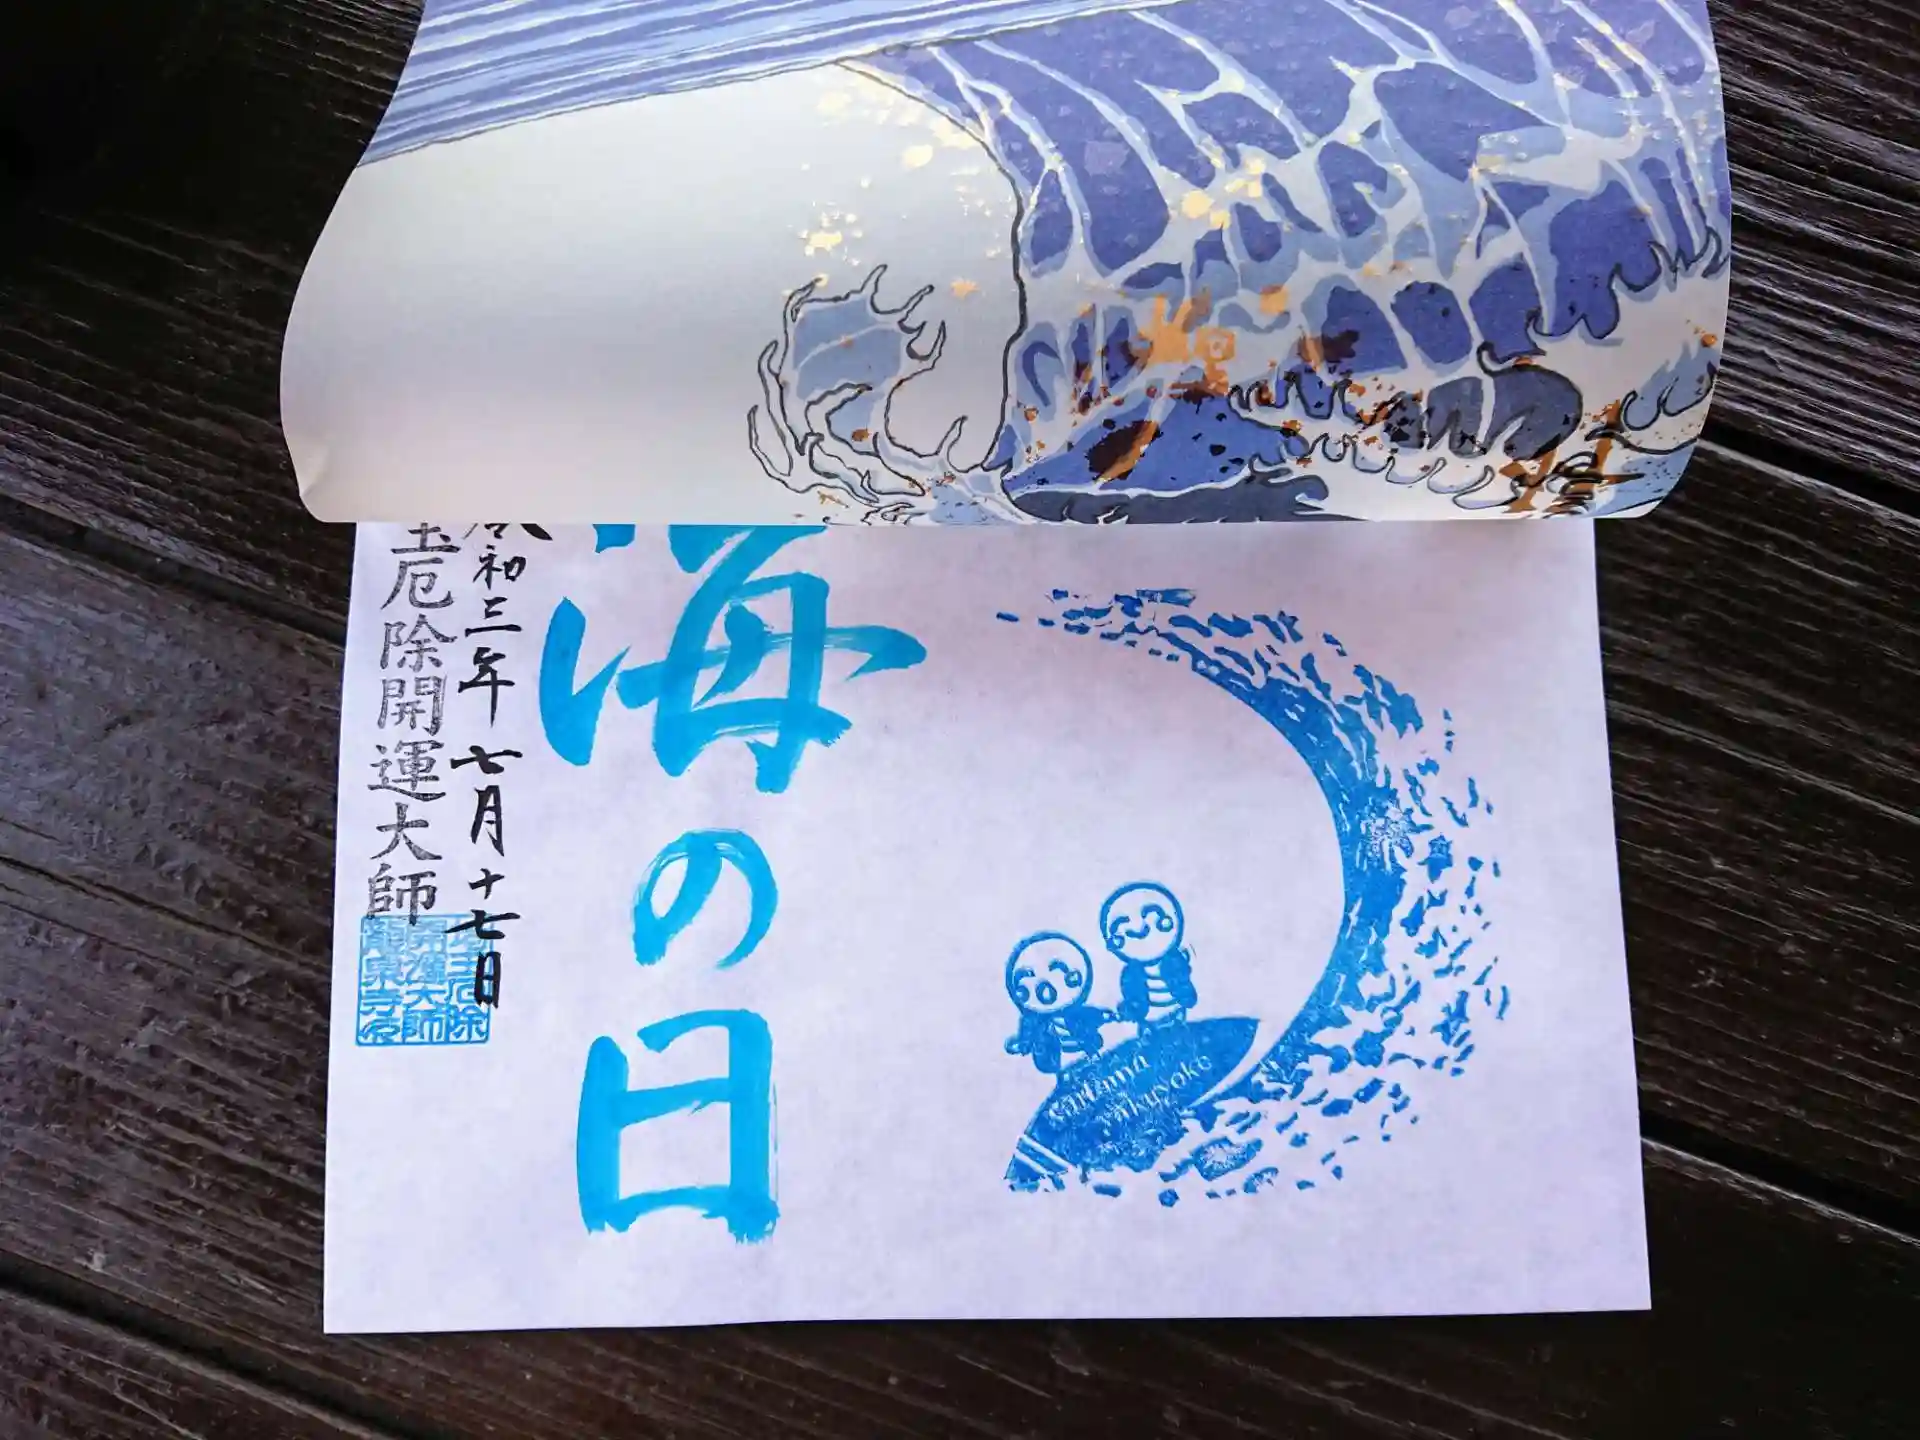 海の日
令和三年七月十七日
玉厄除開運大師
埼玉厄除
開運大師
龍泉寺
Saitama
Yakuyoke